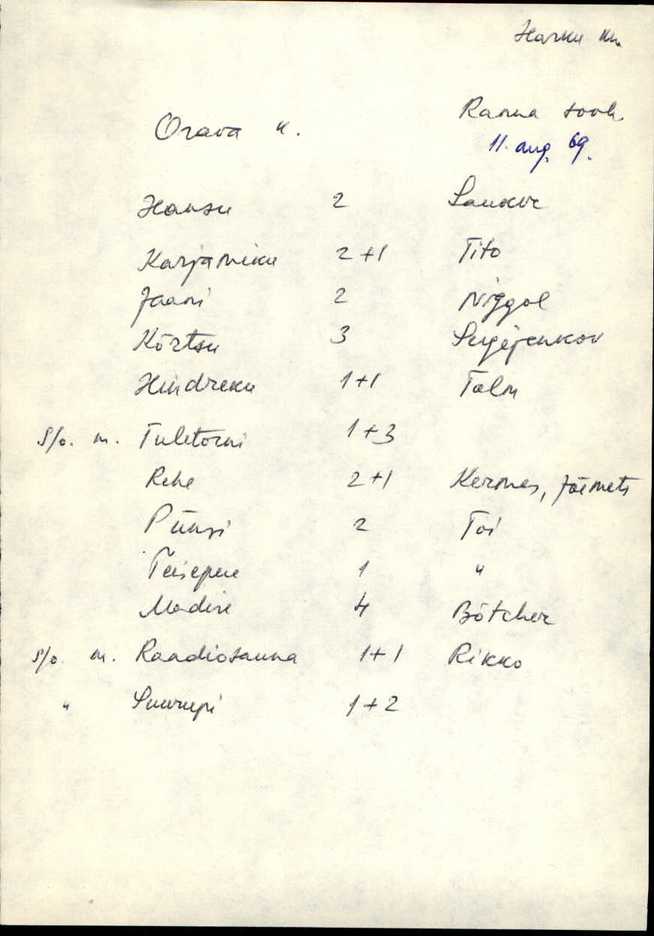 Harku kn.
Ranna sovh.
Orava k.
11. aug. 69.
Hansu 2 Sandor
Karjamiku 2+1 Tito
Jaani 2 Niggol
Kõrtsu 3
Hindreku 1+1 Talm
S/o. m. Tuletorni 1+3
Rehe 2+1 Kermes, Jõemets
Püünsi 2 Toi
Teisepere 1 "
Madise 4 Bötcher
S/o. m. Raadiosauna 1+1 Rikko
" Suurupi 1+2